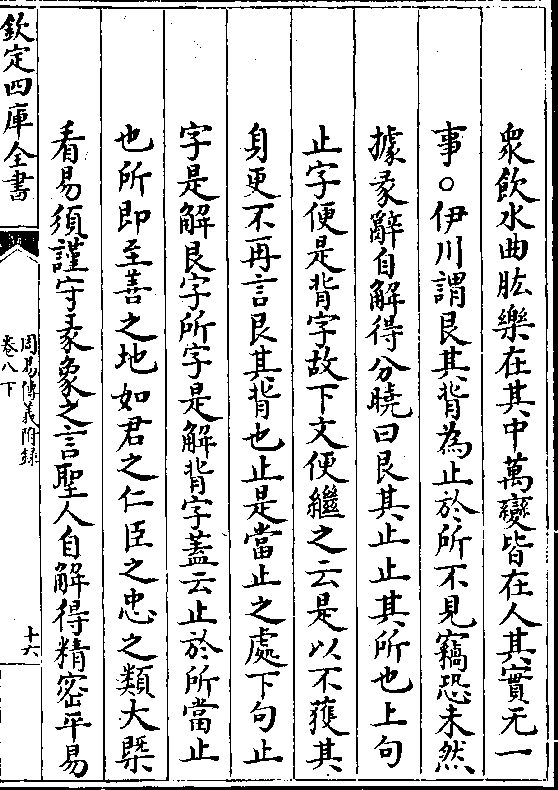 衆飲水曲肱樂在其中萬變皆在人其實无一
事○伊川謂艮其背為止於所不見竊恐未然
據彖辭自解得分曉曰艮其止止其所也上句
止字便是背字故下文便繼之云是以不獲其
身更不再言艮其背也止是當止之處下句止
字是解艮字所字是解背字蓋云止於所當止
也所即至善之地如君之仁臣之忠之類大槩
看易須謹守彖象之言聖人自解得精密平易
欽定四庫全書
周易傳義附錄
卷八下
十六